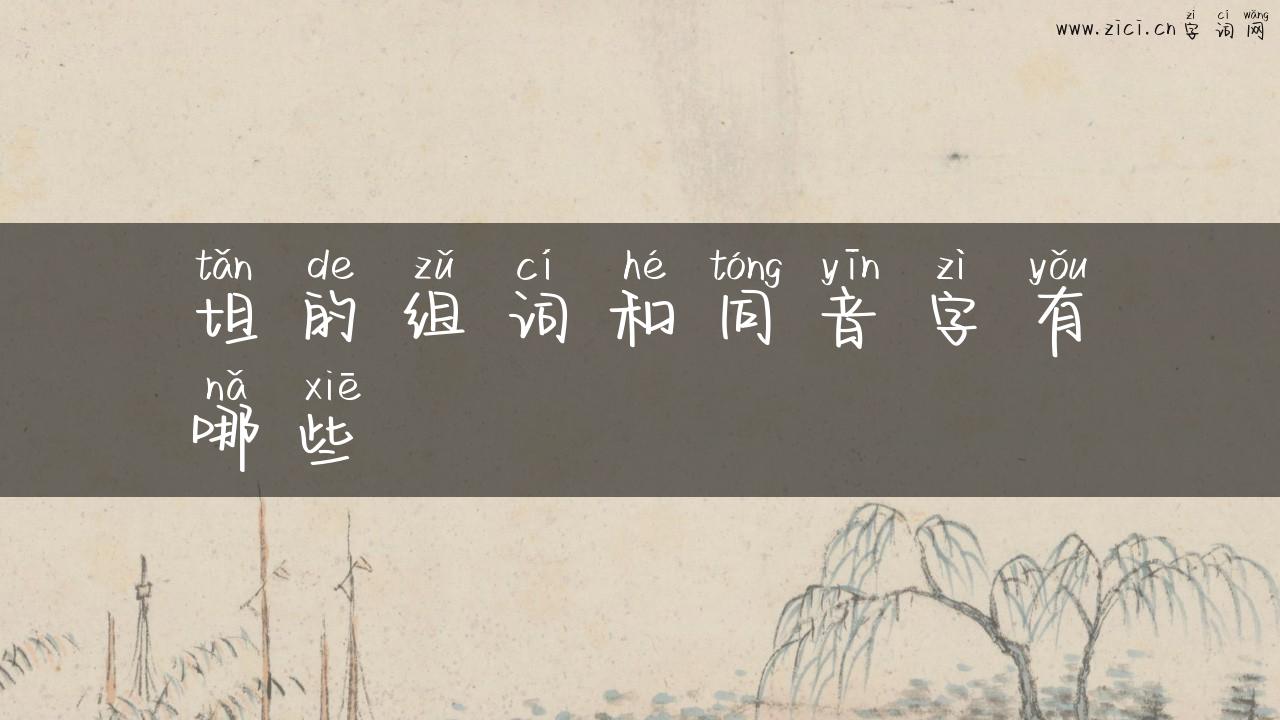 zì cí wǎng
www.zici.cn 字词网
tǎn de zǔ cí hé tóng yīn zì yǒu
坦的组词和同音字有
nǎ xiē
哪些